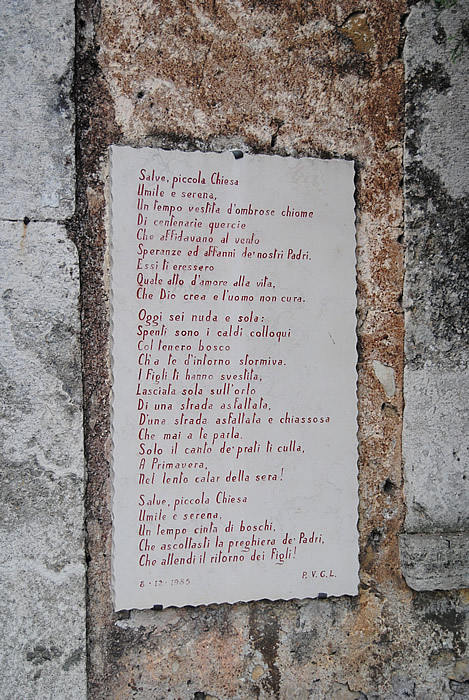 Salve, piccola Chiesa
Umile e serena,
Un tempo vestita d'ombrose chiome
Di centenarie quercie
Che affidavano al vento
Speranze ed affanni de' nostri Padri.
Essi ti eressero
Quale atto d'amore alla vita,
Che Dio crea e l'uomo non cura.
Oggi sei nuda e sola:
Spenti sono i caldi colloqui
Col tenero bosco
Ch'a te d'intorno stormiva.
I Figli ti hanno svestita,
Lasciata sola sull'orlo
Di una strada asfaltata,
D'una strada asfaltata e chiassosa
Che mai a te parla.
Solo il canto de' prati ti culla,
A Primavera,
Nel lento calar della sera!
Salve, piccola Chiesa
Umile e serena,
Un tempo cinta di boschi,
Che ascoltasti la preghiera de' Padri,
Che attendi il ritorno dei Figli!
8·12·1985 P.V.G.L.